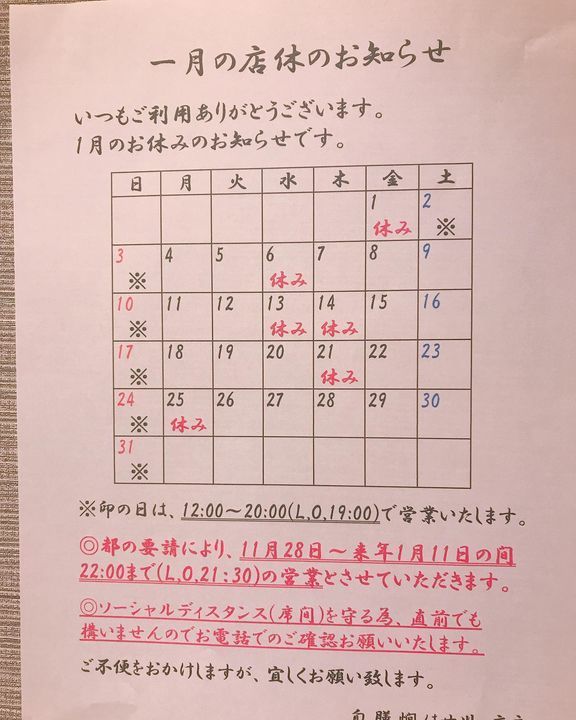 一月の店休のお知らせ
いつもご利用ありがとうございます。
1月のお休みのお知らせです。
日 月 火 水 木 金 土
1 2
休み ※
3 4 5 6 7 8 9
※ 休み
10 11 12 13 14 15 16
※ 休み 休み
17 18 19 20 21 22 23
※ 休み
24 25 26 27 28 29 30
※ 休み
31
※
※印の日は、12:00〜20:00(L,O,19:00)で営業いたします。
◎都の要請により、11月28日〜来年1月11日の間
22:00まで(L,O,21:30)の営業とさせていただきます。
◎ソーシャルディスタンス(席間)を守る為、直前でも
構いませんのでお電話でのご確認お願いいたします。
ご不便をおかけしますが、宜しくお願い致します。